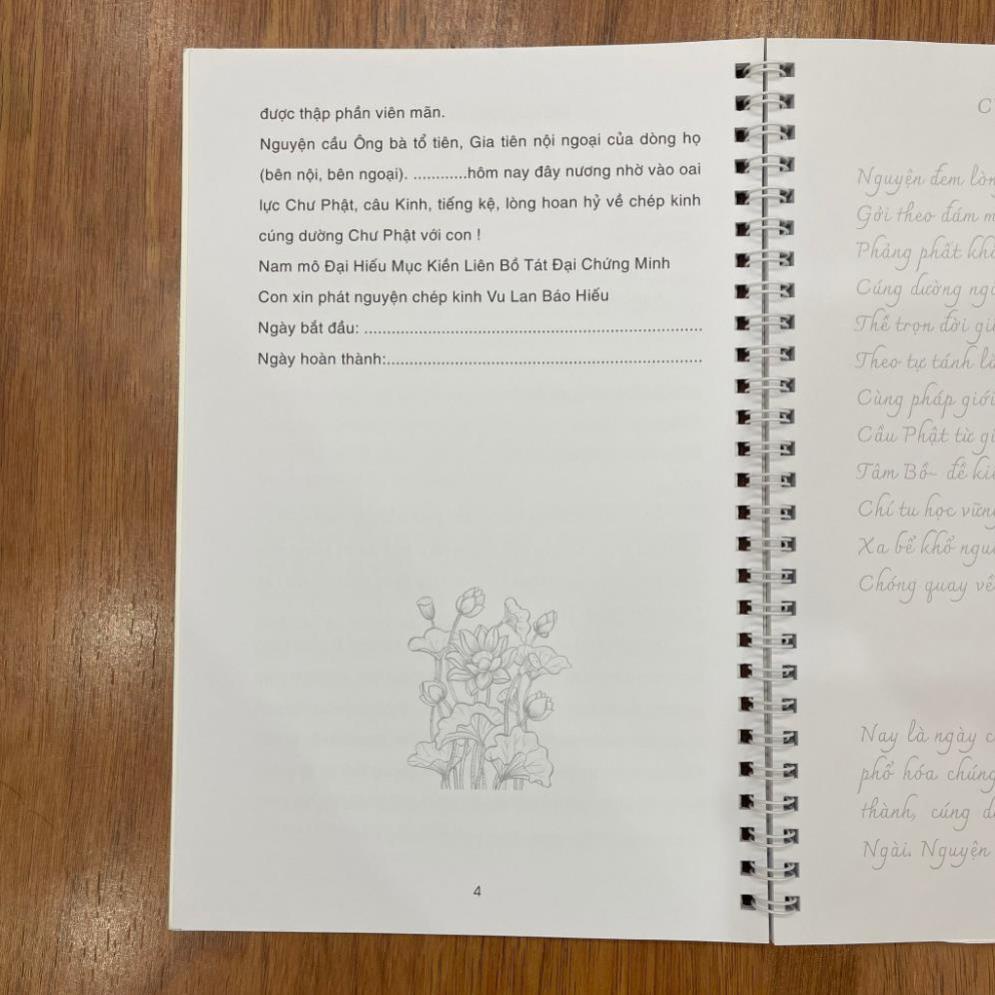 được thập phần viên mãn.
Nguyện cầu Ông bà tổ tiên, Gia tiên nội ngoại của dòng họ
(bên nội, bên ngoại). ............hôm nay đây nương nhờ vào oai
lực Chư Phật, câu Kinh, tiếng kệ, lòng hoan hỷ về chép kinh
cúng dường Chư Phật với con !
Nam mô Đại Hiếu Mục Kiền Liên Bồ Tát Đại Chứng Minh
Con xin phát nguyện chép kinh Vu Lan Báo Hiếu
Ngày bắt đầu: ..............................................................................
Ngày hoàn thành:.........................................................................
4
C
Nguyện đem lòn
Gởi theo đám m
Phảng phất khó
Cúng dường ngô
Thề trọn đời gi
Theo tự tánh là
Cùng pháp giới
Cầu Phật từ gi
Tâm Bồ- đề ki
Chí tu học vững
Xa bể khổ ngu
Chóng quay về
Nay là ngày c
phổ hóa chúng
thành, cúng d
Ngài. Nguyện